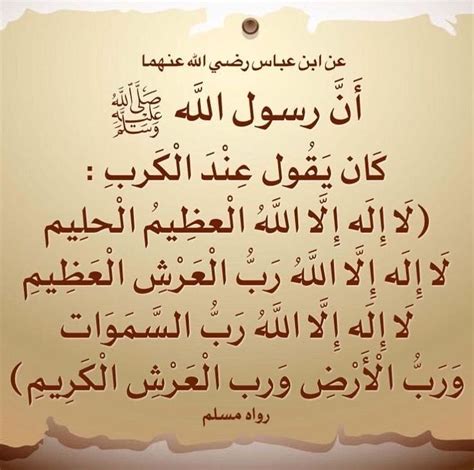 عن ابن عباس رضي الله عنهما
أَنَّ رسول اللَّه ﷺ
كَان يَقُول عِنْدَ الْكَربِ :
(لَا إِلَه إِلَّا اللَّهُ الْعظِيمُ الْحلِيم
لَا إِلَه إِلَّا اللَّهُ رَبُّ الْعَرْشِ الْعَظِيمِ
لَا إِلَه إِلَّا اللَّهُ رَبُّ السَّمَوَات
وَرَبُّ الْأَرْضِ وَرب الْعَرْشِ الْكَرِيمِ)
رواه مسلم